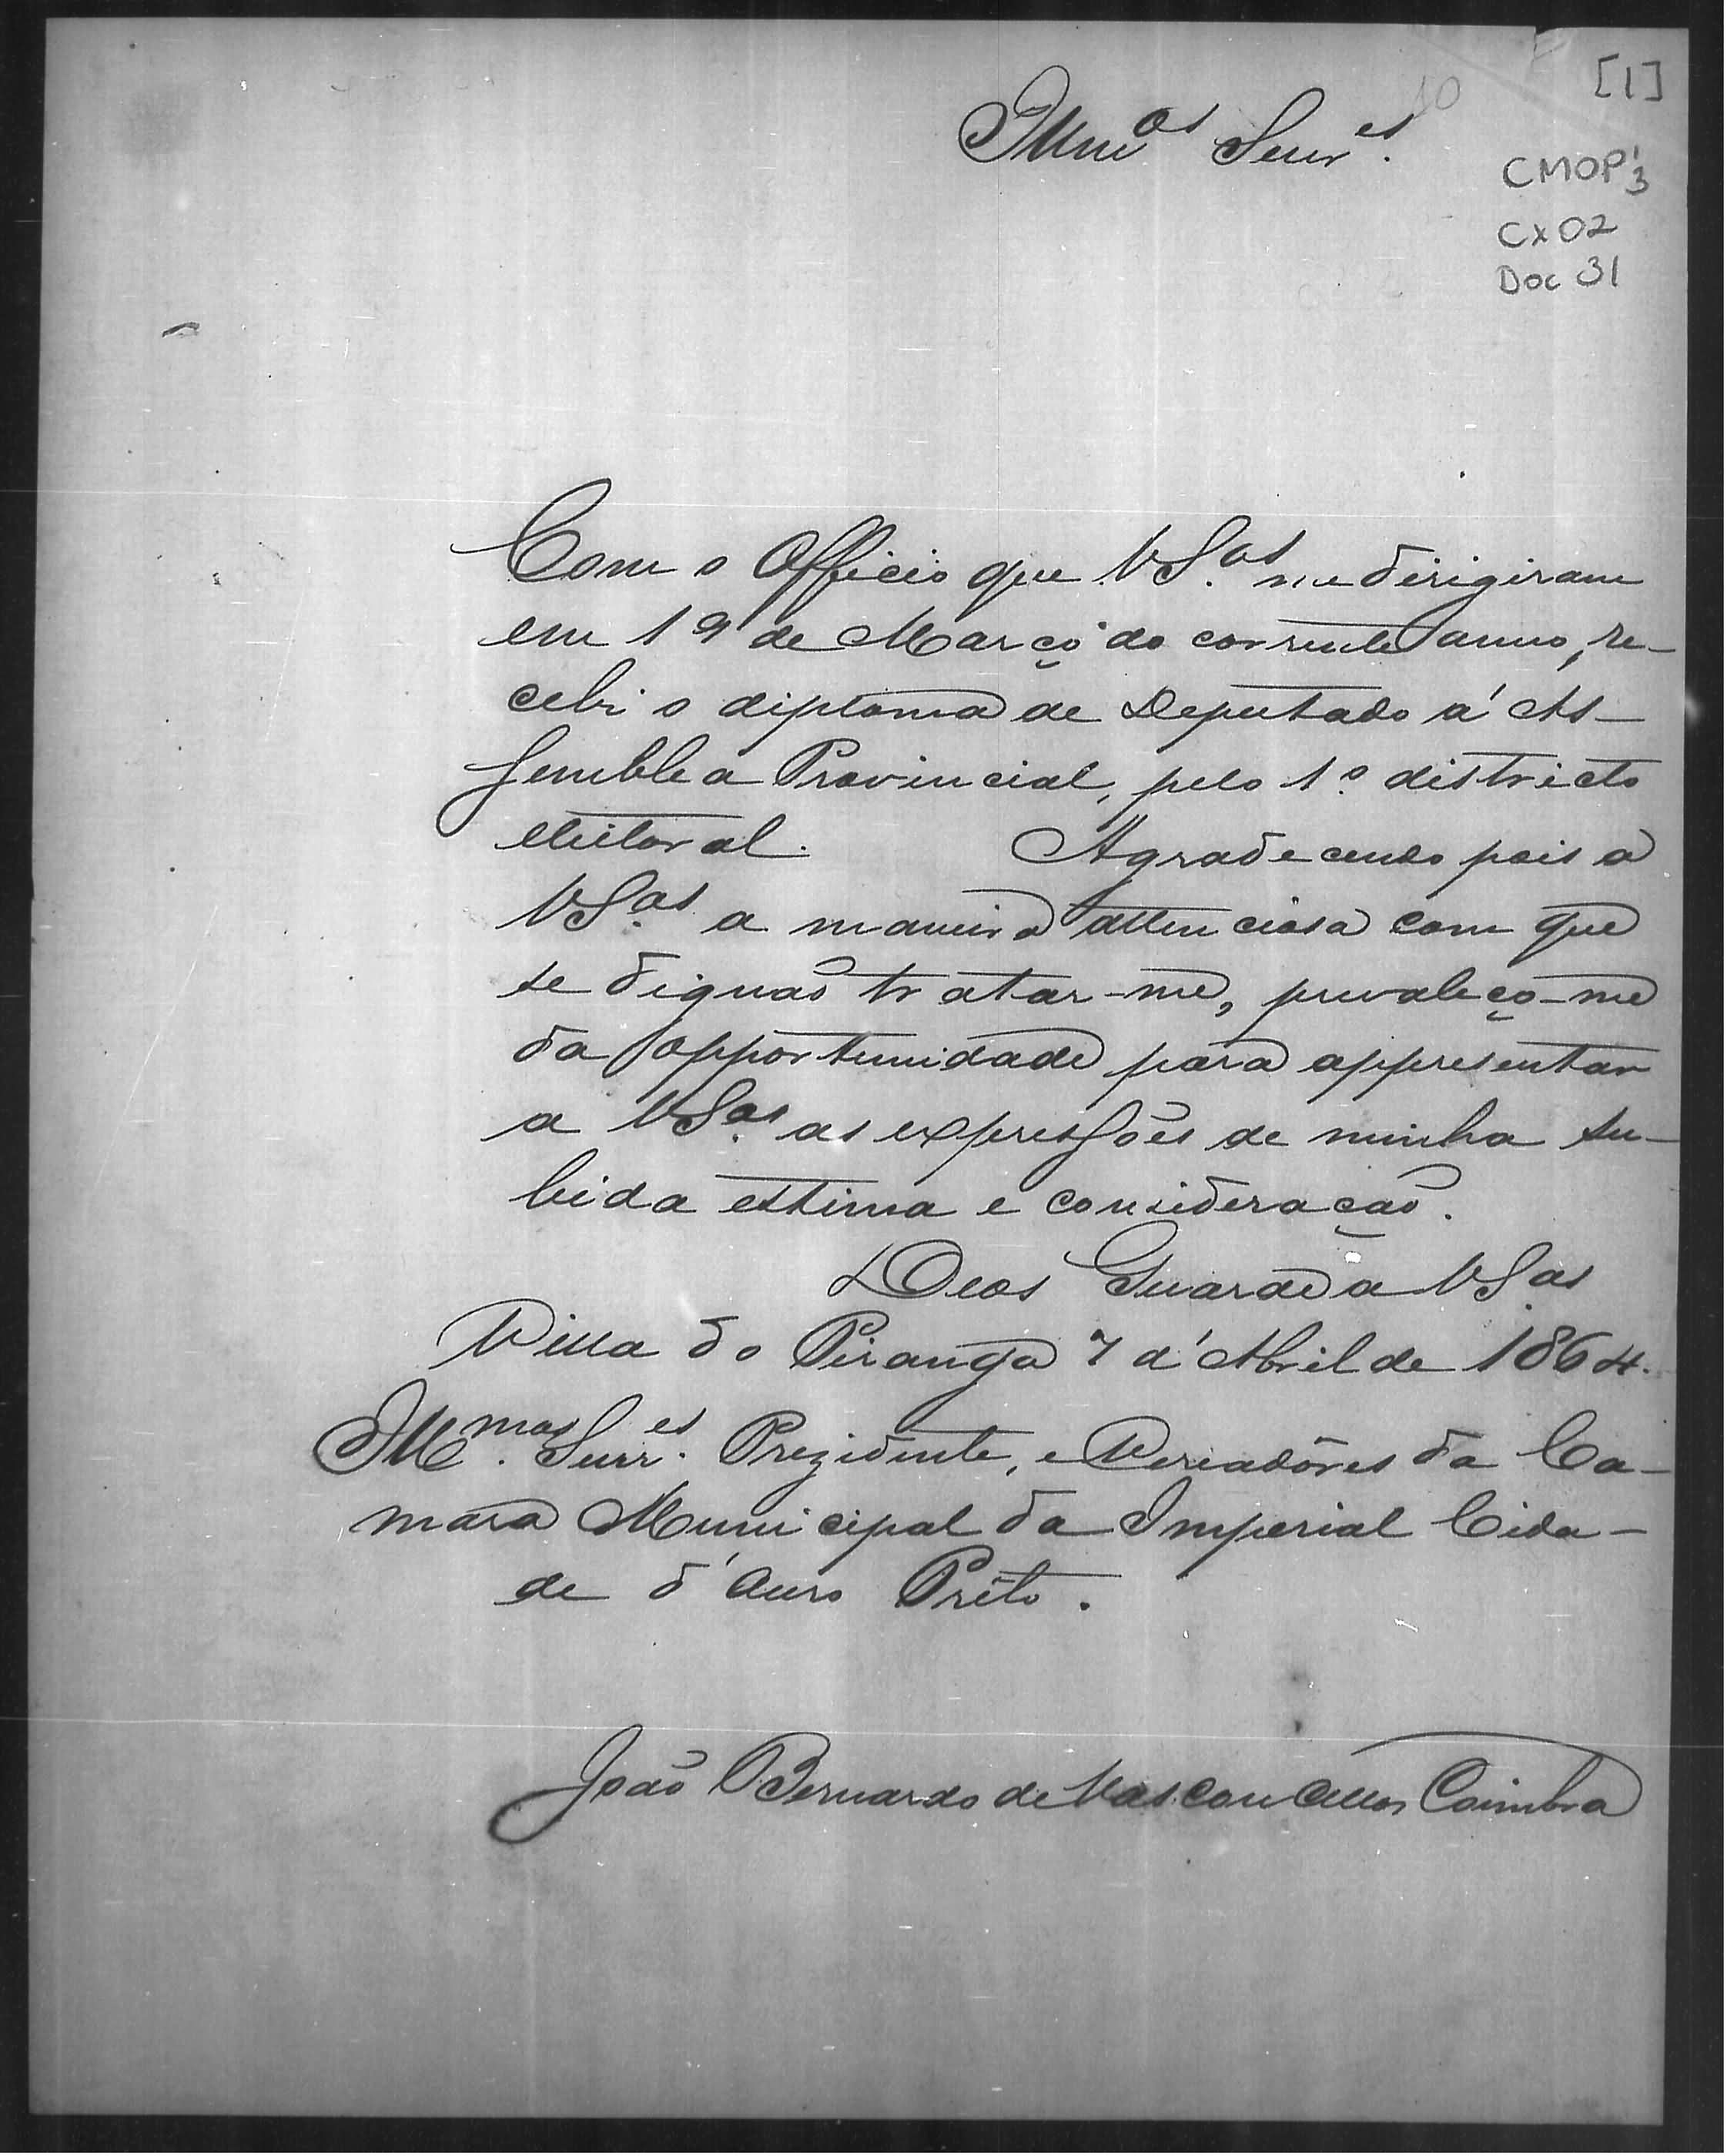 [1]
Illmos Senres.
CMOP 1/3
Cx 02
Doc 31
Com o Officio que VS.as me dirigiram
em 19 de Março do corrente anno, re-
cebi o diploma de Deputado á As-
semblea Provincial, pelo 1º districto
eleitoral. Agradecendo pois a
VS.as a maneira attenciosa com que
se dignaõ tratar-me, prevaleço-me
da opportunidade para appresentar
a VS.as as expressões de minha su-
bida estima e consideraçaõ.
Deos Guarde a VSas
Villa do Piranga 7 d'Abril de 1864.
Illmos. Senres. Prezidente, e Vereadôres da Ca-
mara Municipal da Imperial Cida-
de d'Ouro Prêto.
João Bernardo de Vasconcellos Coimbra